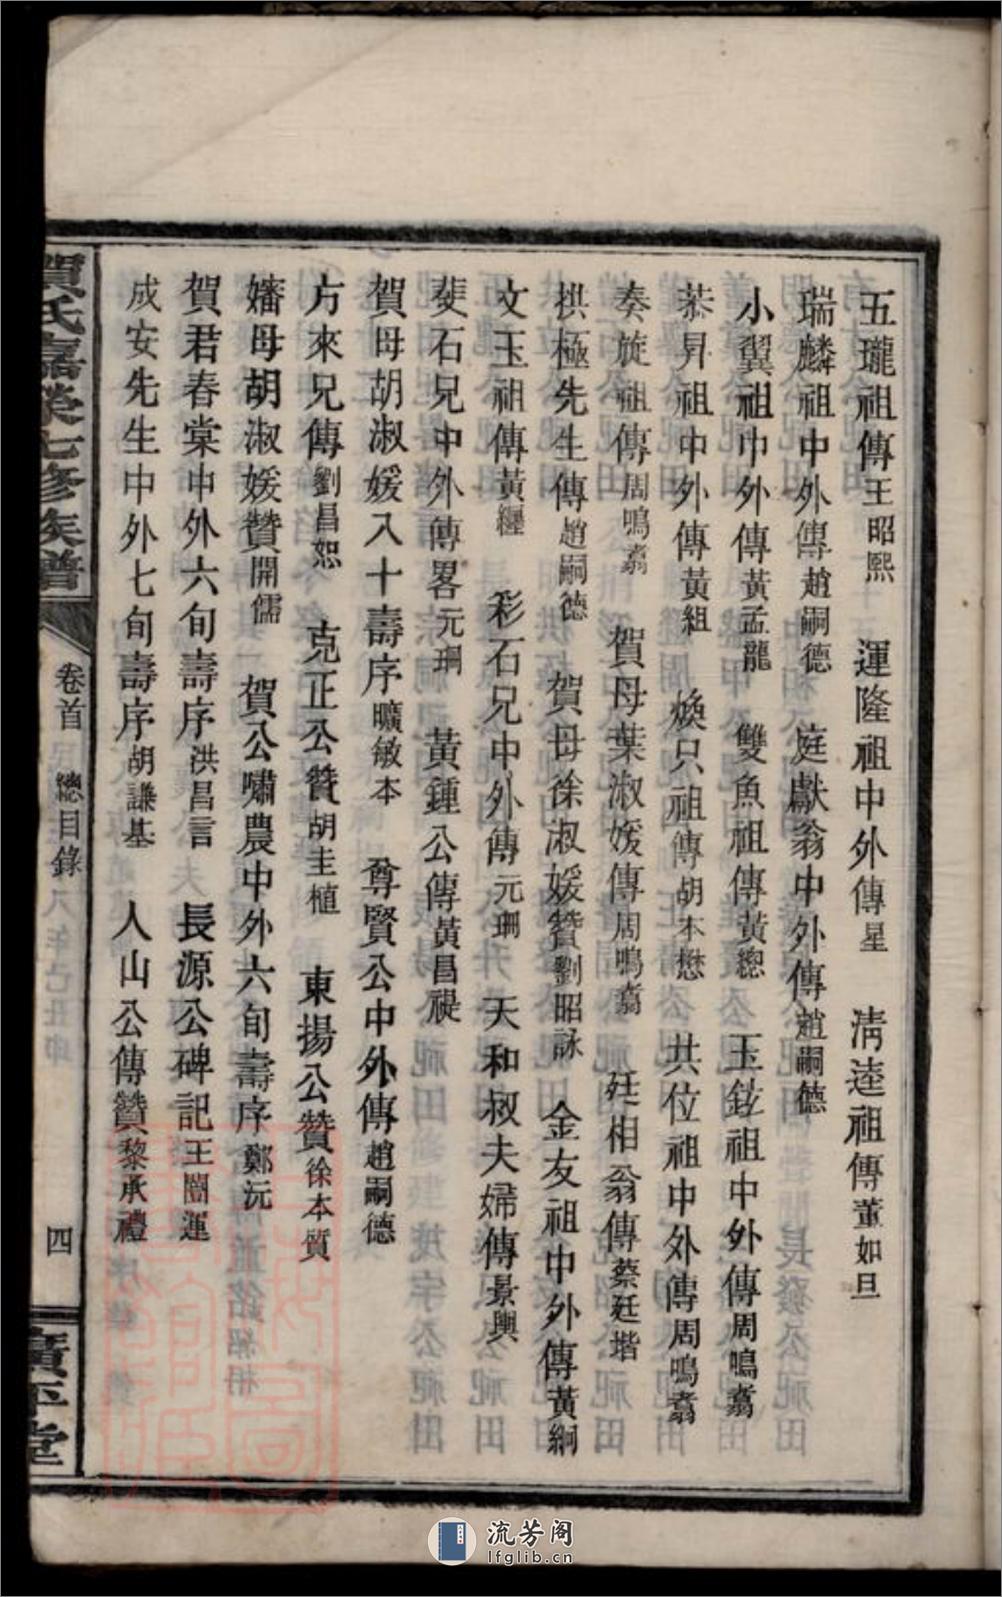 五瓏祖傳王昭熙　運隆祖中外傳星　清逵祖傳董如旦
瑞麟祖中外傳趙嗣德　庭獻翁中外傳趙嗣德
小翼祖中外傳黃孟龍　雙魚祖傳黃總　玉鉉祖中外傳周鳴翥
恭昇祖中外傳黃組　煥只祖傳胡本懋　共位祖中外傳周鳴翥
奏旋祖傳周鳴翥　賀母葉淑媛傳周鳴翥　廷相翁傳蔡廷堦
拱極先生傳趙嗣德　賀母徐淑媛贊劉昭詠　金友祖中外傳黃綱
文玉祖傳黃纏　彩石兄中外傳元珊　天和叔夫婦傳景輿
斐石兄中外傳畧元珊　黃鍾公傳黃昌禔
賀母胡淑媛八十壽序曠敏本　尊賢公中外傳趙嗣德
方來兄傳劉昌恕　克正公贊胡主植　東揚公贊徐本質
嬸母胡淑媛贊開儒　賀公嘯農中外六旬壽序鄭沅
賀君春棠中外六旬壽序洪昌言　長源公碑記王闓運
成安先生中外七旬壽序胡謙基　人山公傳贊黎承禮
賀氏嘉榮七修族譜　卷首　總目錄　四　廣平堂
流芳阁
lfglib.cn